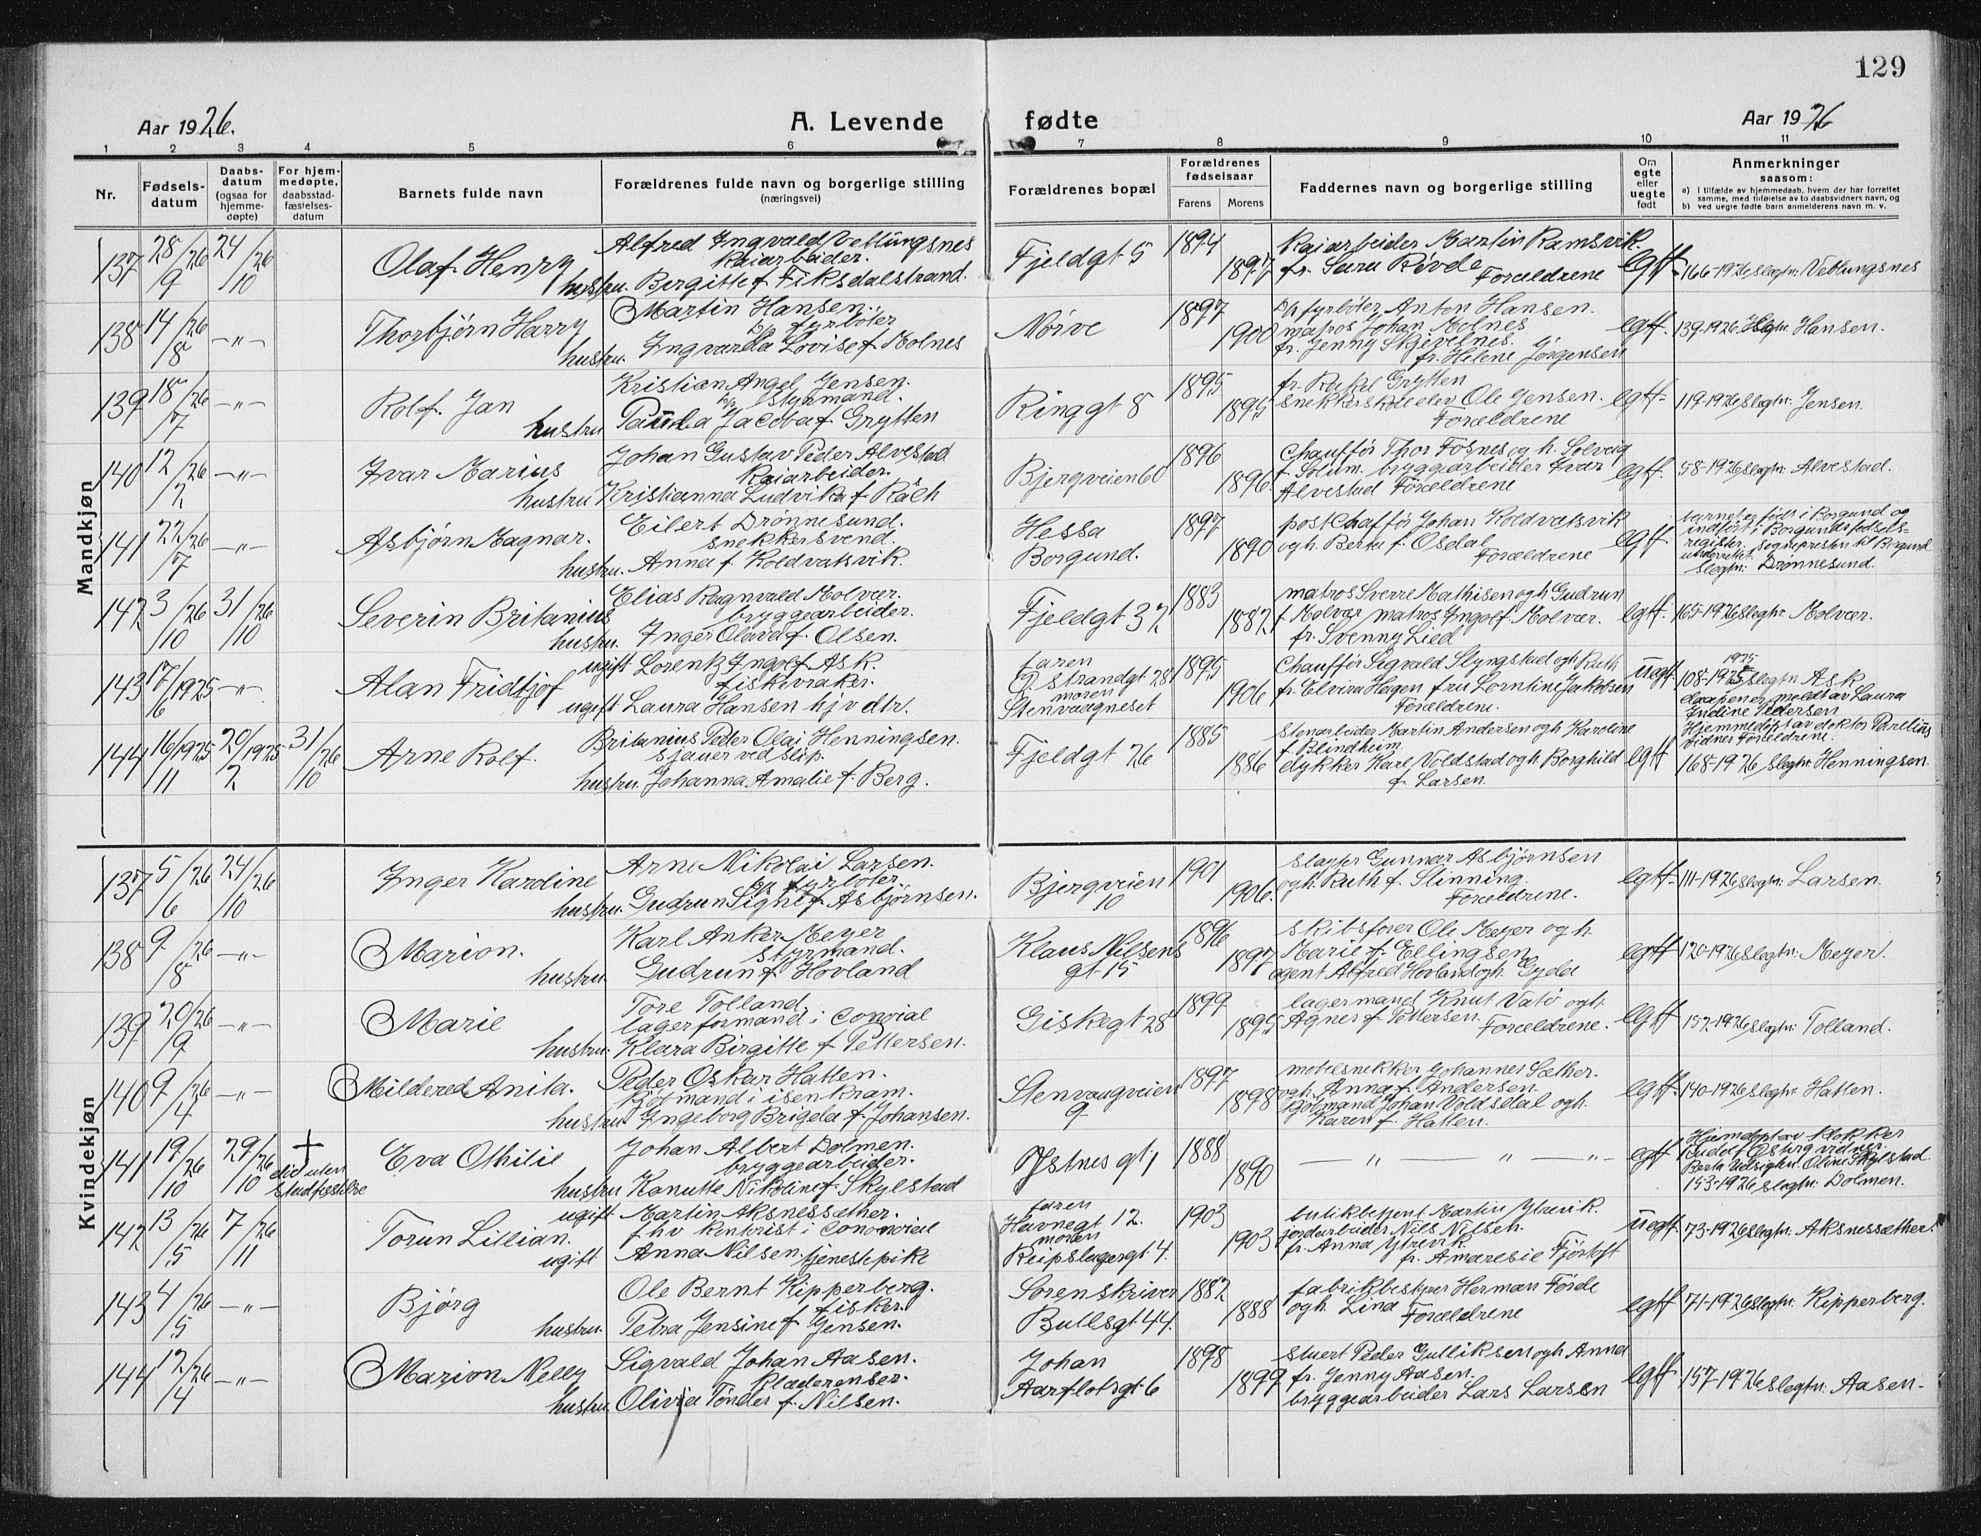 129
Aar 1926.
A. Levende fødte
Aar 1926
1 2 3 4 5 6 7 8 9 10 11
Nr.
Fødsels-
datum
Daabs-
datum
(ogsaa for
hjemme-
døpte)
For hjem-
medøpte,
daabsstad-
fæstelses-
datum
Barnets fulde navn
Forældrenes fulde navn og borgerlige stilling
(næringsvei)
Forældrenes bopæl
Forældrenes
fødselsaar
Farens Morens
Faddernes navn og borgerlige stilling
Om
egte
eller
uegte
født
Anmerkninger
saasom:
a) I tilfælde av hjemmedaab, hvem der har forrettet
samme, med tilføielse av to daabsvidners navn, og
b) ved uegte fødte barn anmelderens navn m. v.
Mandkjøn
137 28/9 26 24/10 26 Olaf Henry
Alfred Ingvald Vetlungsnes
kaiarbeider.
hustru. Bergitte f. Fiksdalstrand.
Fjeldgt 5 1894 1897
kaiarbeider Martin Ramsvik.
fr. Sara Røvde Forældrene
egtf. 166-1926 slegtn: Vetlungsnes
138 14/8 26 -"- Thorbjørn Harry
Martin Hansen.
d/p fyrbøter
hustru. Ingvarda Lovise f. Molnes
Nørve 1897 1900
D/p fyrbøter Anton Hansen.
matros Johan Molnes
fr. Jenny Skjevelsnes.
fr. Helene Jørgensen
egtf. 139-1926 slegtn. Hansen.
139 18/7 26 -"- Rolf Jan
Kristian Angel Jensen.
d/p styrmand.
hustru Paula Jacoba f. Grytten
Ringgt 8 1895 1895
fr. Rakel Grytten
snekkerskoleelev Ole Jensen.
Forældrene
egtf. 119-1926 slegtn. Jensen.
140 12/2 26 -"- Ivar Marius
Johan Gustav Peder Alvestad
kaiarbeider.
hustru Kristianna Ludvika f. Råeh
Bjergveien 60 1896 1896.
Chauffør Thor Fosnes og h. Solveig
f. Solum. bryggearbeider Ivar
Alvestad Forældrene
egtf. 58-1926 slegtn: Alvestad.
141 22/7 26 -"- Asbjørn Magnar.
Eilert Drønnesund.
snekkersvend.
hustru. Anna f. Koldvatsvik.
Hessa
Borgund. 1897 1890
postchaffør Johan Koldvatsvik
ogh. Berta f. Osdal
Forældrene
egtf barnet er født i Borgund og
indført i Borgunds fødsels-
register. sognepresten til Borgund
underrettet.
slegtn: Drønnesund.
142 3/10 26 31/10 26 Severin Britanius
Elias Ragnvald Molvær.
bryggearbeider.
hustru. Inger Olava f. Olsen.
Fjeldgt 32 1883 1882
matros Sverre Mathisen ogh Gudrun
f. Molvær matros Ingolf Molvær.
fr. Svenny Lied
egtf. 165-1926 slegtn. Molvær.
143 17/6 1925 -"- Alan Fridtjof
ugift Lorentz Ingolf Ask.
fiskevraker.
ugift Laura Hansen hjv dtr.
faren
Ø. strandgt 28
moren
Stenvaagneset 1895 1906
Chauffør Sigvald Slyngstad ogh Ruth
fr. Elvira Hagen fru Lorntine Jakobsen
Forældrene.
uegtf 1925
108-1925 slegtn Ask
daapen er meldt av Laura
Indine Pedersen
144 16/11 1925 20/2 1925 31/10 26 Arne Rolf.
Britanius Peder Olai Henningsen.
sjauer ved slip.
hustru. Johanna Amalie f. Berg.
Fjeldgt 26 1885 1886
stenarbeider Martin Andersen ogh Karoline
f. Blindheim
dykker Karl Voldstad ogh Borghild
f. Larsen.
egtf Hjemmedøpt av doktor Parelius
vidner Forældrene.
168-1926 slegtn: Henningsen.
Kvindekjøn
137 5/6 26 24/10 26 Inger Karoline
Arne Nikolai Larsen.
d/p fyrbøter
hustru. Gudrun Signe f. Asbjørnsen.
Bjergveien
10 1901 1906.
slagter Gunnar Asbjørnsen
ogh. Ruth f. Slinning.
Forældrene.
egtf. 111-1926 slegtn: Larsen.
138 9/8 26 -"- Marion.
Karl Anker Meyer
styrmand.
hustru. Gudrun f. Hovland
Klaus Nilsens
gt. 15 1896 1897
skibsfører Ole Meyer og h.
Marie f. Ellingsen
agent Alfred Hovland ogh. Gyda
egtf 120-1926 slegtn: Meyer.
139 20/9 26 -"- Marie
Tore Tolland,
lagerformand i Conovial
hustru. Klara Birgitte f. Pettersen.
Giskegt 28 1899 1895
lagermand Knut Vatø ogh.
Agnes f. Pettersen. Forældrene.
egtf 157-1926 slegtn: Tolland.
140 9/4 26 -"- Mildered Anita.
Peder Oskar Hatten.
kjøpmand i isenkram.
hustru Ingeborg Brigeta f. Johansen.
Stenvaagveien
9 1897 1898
møbelsnekker Johannes Sæther.
ogh. Anna f. Andersen
kjølmand Johan Voldsdal ogh.
Karen f. Hatten.
egtf. 140-1926 slegtn: Hatten.
141 19/10 26 29/10 26 + død uten
stadfestelse Eva Othilie
Johan Albert Dolmen.
bryggearbeider.
hustru Kanutte Nikoline f. Skylstad
Ystnesgt 1 1888 1890
— " — " —
egtf Hjemdøpt av klokker
Rudolf Østerg vidner.
Berta Velsighn. Oline Skylstad.
153-1926 slegtn: Dolmen.
142 13/5 26 7/11 26 Torun Lillian.
ugift Martin Aksnessæther.
fhv kontorist i Conovial
ugift Anna Nilsen, tjenestepike
faren
Havnegt 12.
moren
Reipslagergt 4. 1903 1903
butikbetjent Martin Ytrevik.
jordarbeider Nils Nilsen.
fr. Anna Ytrevik
fr. Amaresie Fjørtoft
uegtf. 73-1926 slegtn: Aksnessæther.
143 4/5 26 -"- Bjørg
Ole Bernt Kipperberg.
fisker.
hustru. Petra Jensine f. Jensen.
Sorenskriver
Bullsgt 44. 1882 1888
fabrikbestyrer Herman Førde
ogh Lina Forældrene
egtf 71-1926 slegtn: Kipperberg.
144 12/4 26 -"- Marion Nelly
Sigvald Johan Aasen.
klædrenser.
hustru. Olivia Tønder f. Nilsen.
Johan
Aarflotsgt 6 1898 1899
stuert Peder Gulliksen ogh Anna
fr. Jenny Aasen.
bryggearbeider Lars Larsen
egtf 157-1926 slegtn: Aasen.